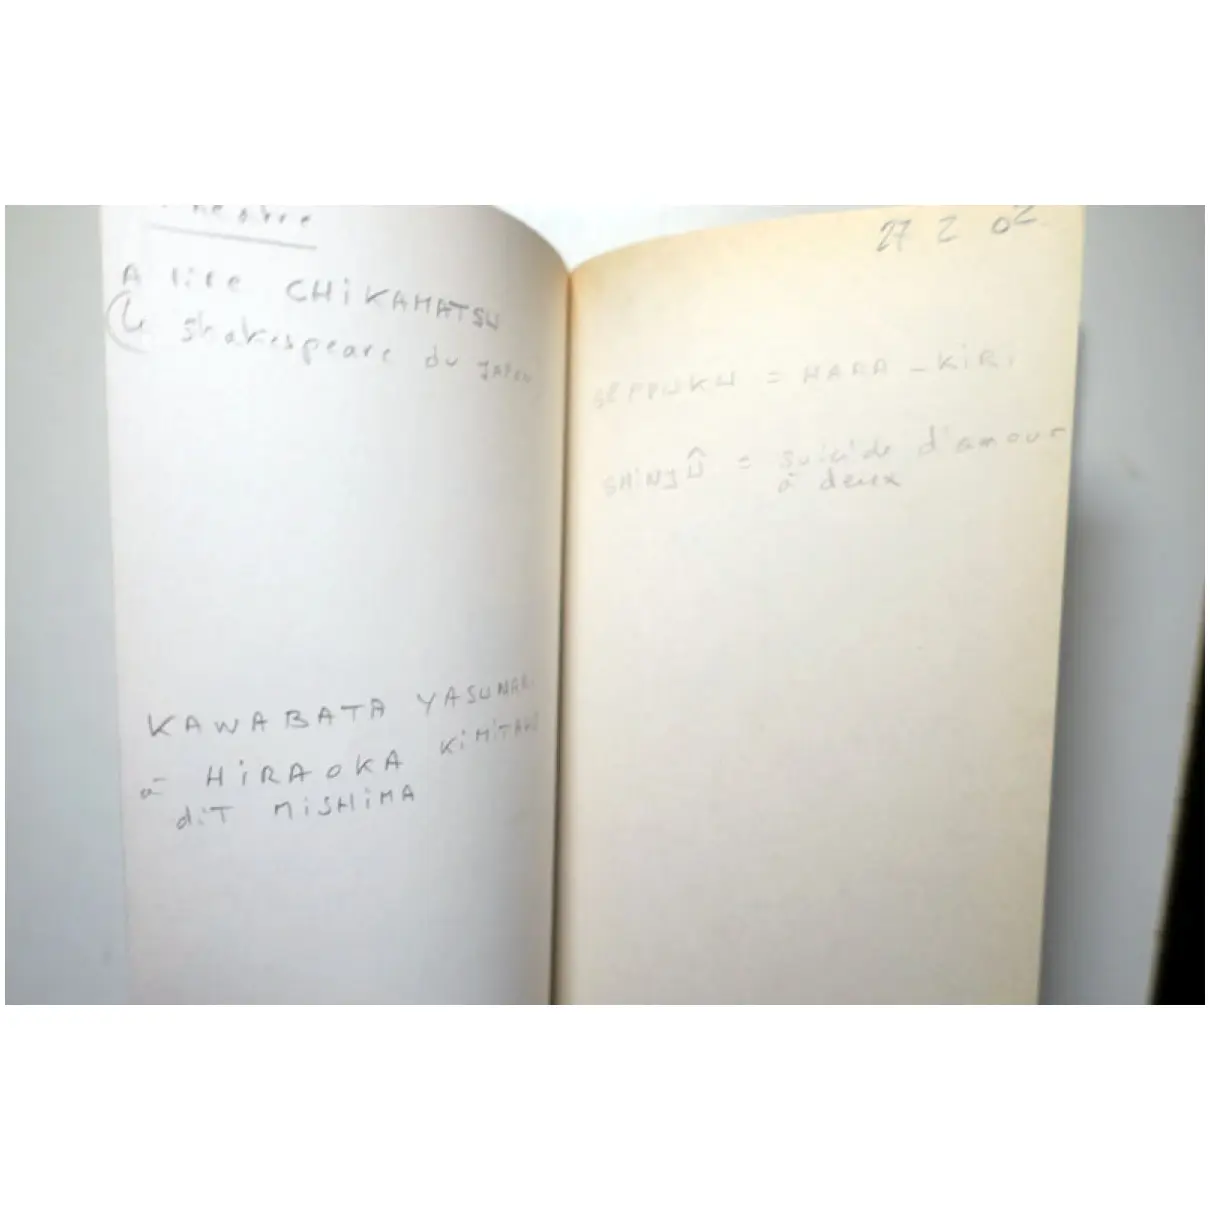 A lire CHIKAMATSU
(Le Shakespeare du JAPON
KAWABATA YASUNARI
à HIRAOKA KIMITAKE
dit MISHIMA
27 2 02
SEPPUKU = HARA-KIRI
SHINYÛ = suicide d'amour
à deux